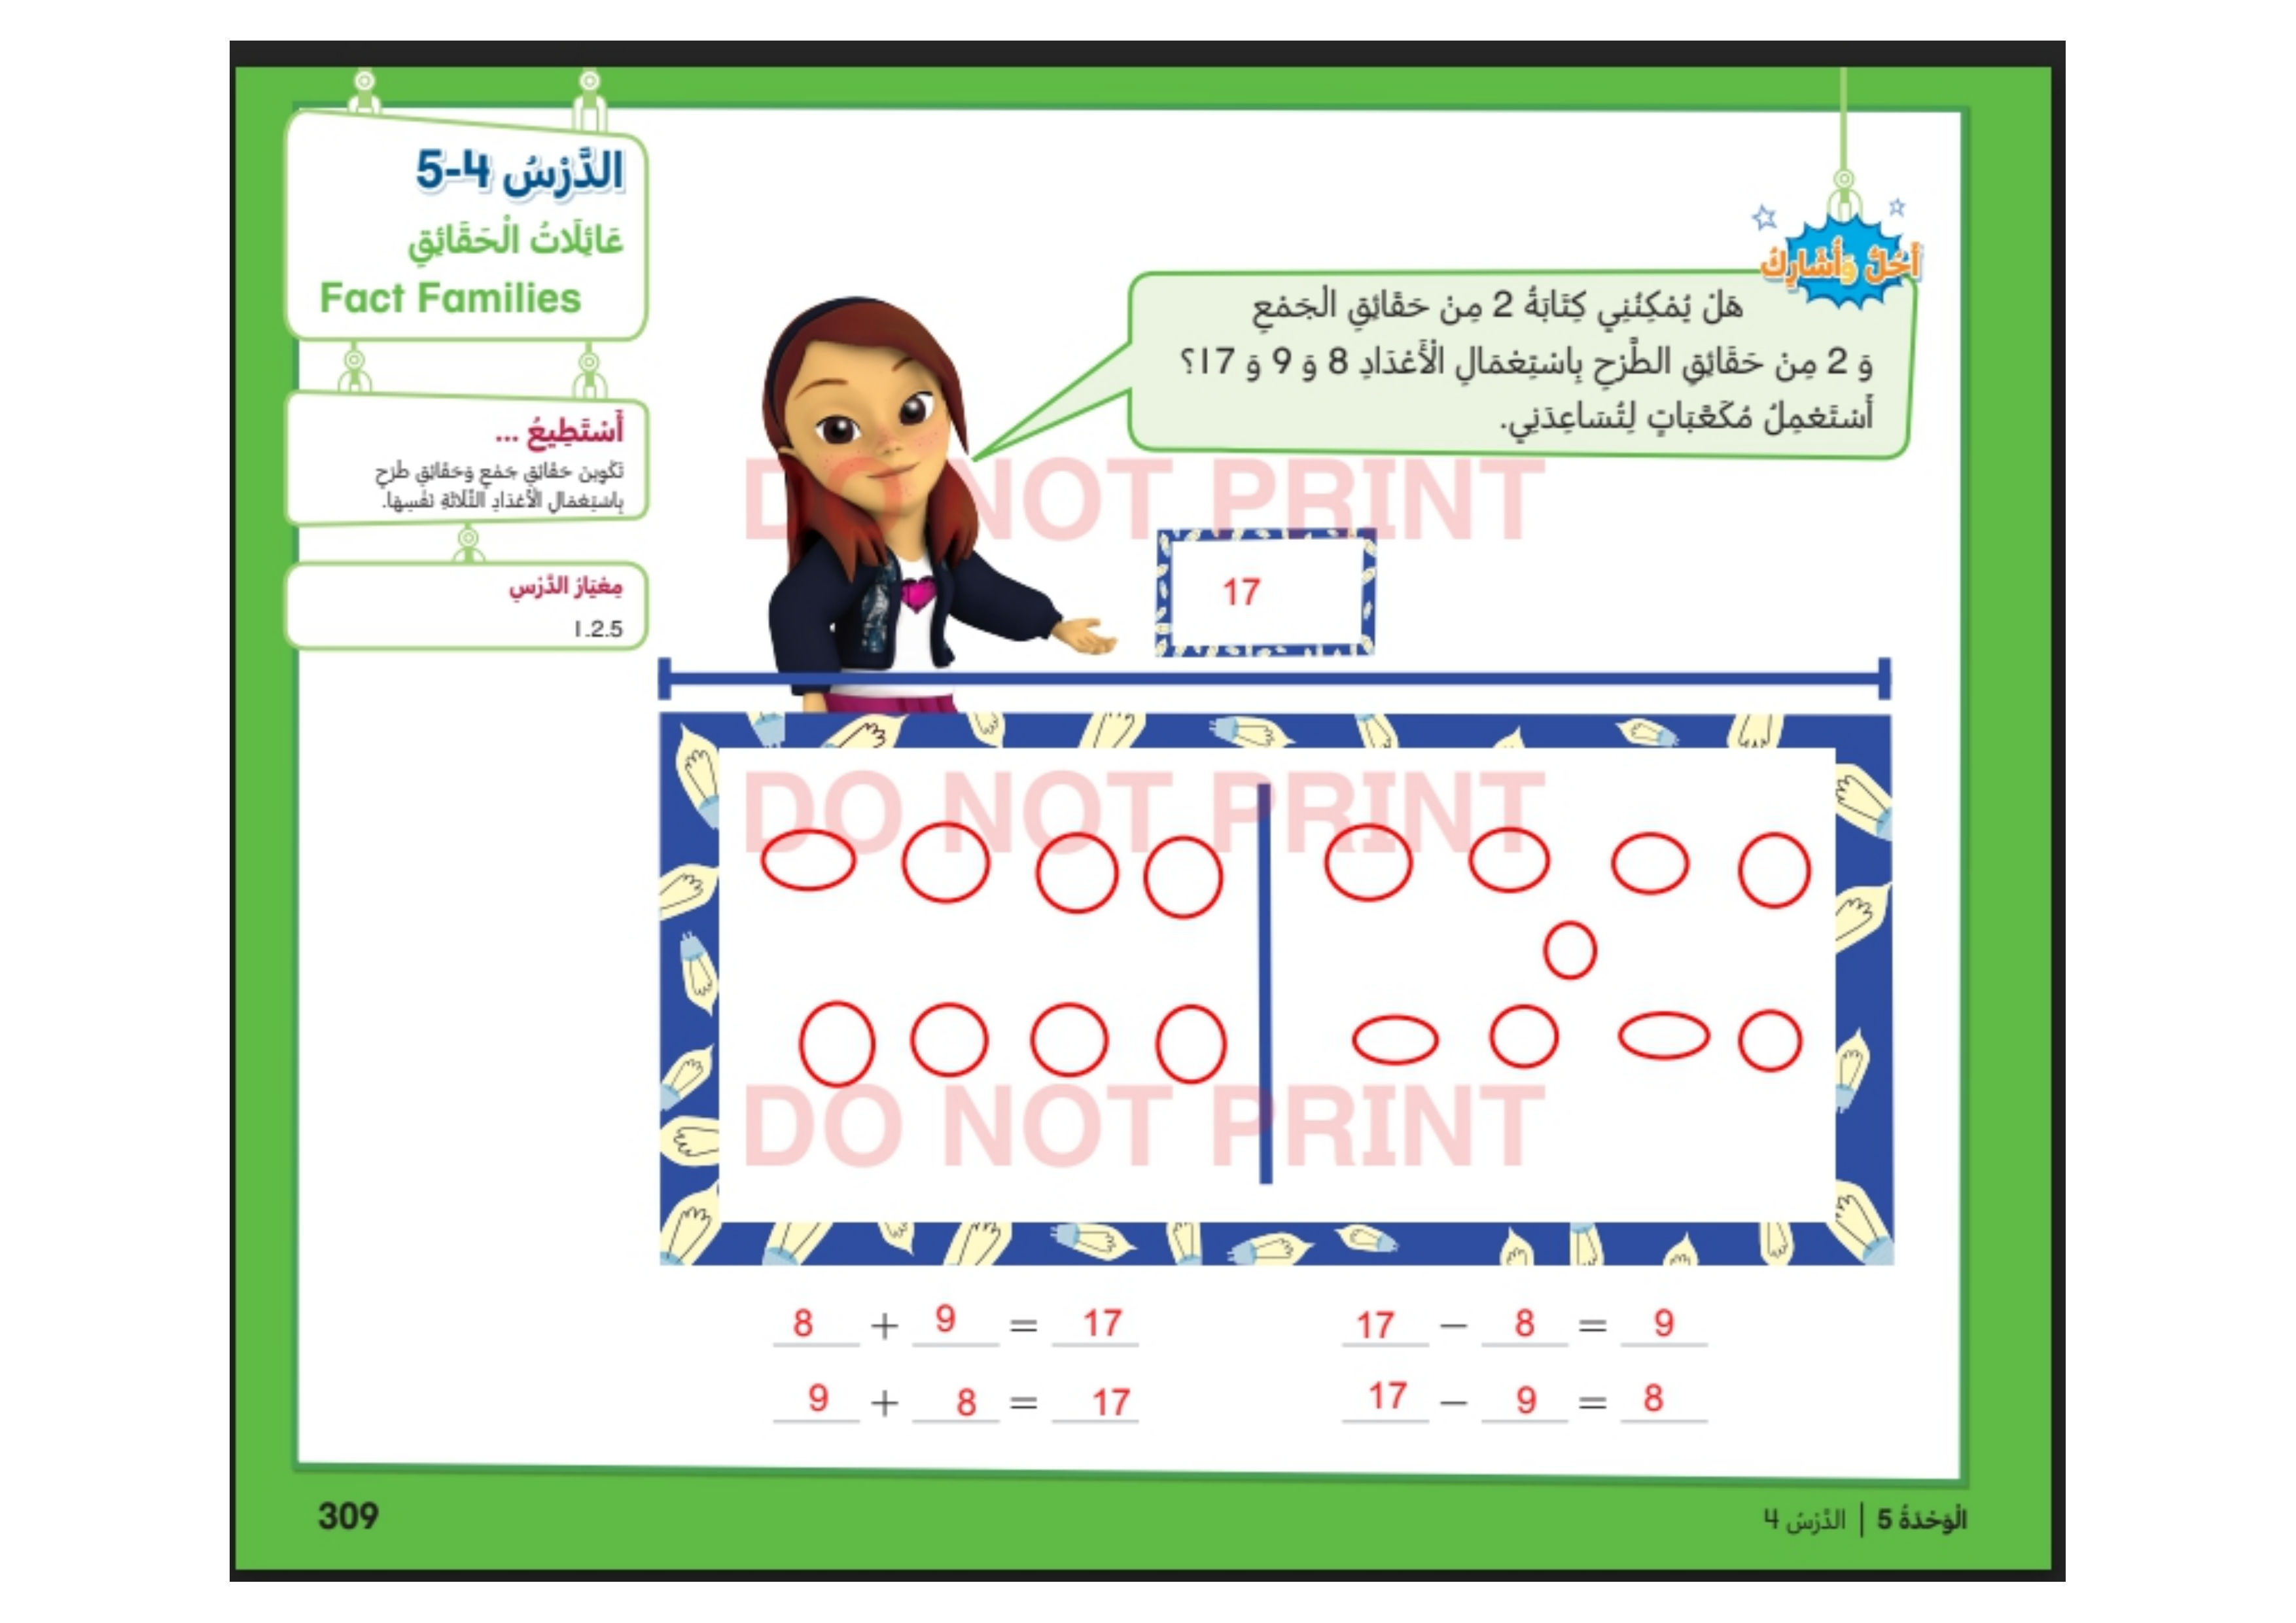 الدَّرْسُ 4-5
عَائِلَاتُ الْحَقَائِقِ
Fact Families
أَسْتَطِيعُ ...
تَكْوِينَ حَقَائِقِ جَمْعٍ وَحَقَائِقِ طَرْحٍ
بِاسْتِعْمَالِ الْأَعْدَادِ الثَّلَاثَةِ نَفْسِهَا.
مِعْيَارُ الدَّرْسِ
1.2.5
أَحُلُّ وَأُشَارِكُ
هَلْ يُمْكِنُنِي كِتَابَةُ 2 مِنْ حَقَائِقِ الْجَمْعِ
وَ 2 مِنْ حَقَائِقِ الطَّرْحِ بِاسْتِعْمَالِ الْأَعْدَادِ 8 وَ 9 وَ 17؟
أَسْتَعْمِلُ مُكَعَّبَاتٍ لِتُسَاعِدَنِي.
DO NOT PRINT
17
DO NOT PRINT
DO NOT PRINT
8 + 9 = 17
17 − 8 = 9
9 + 8 = 17
17 − 9 = 8
309
الْوَحْدَةُ 5 | الدَّرْسُ 4